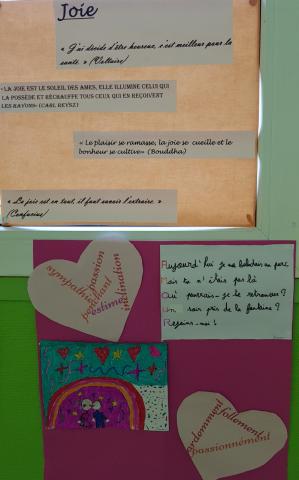 Joie
« J'ai décidé d'être heureux, c'est meilleur pour la
santé. » (Voltaire)
« LA JOIE EST LE SOLEIL DES AMES, ELLE ILLUMINE CELUI QUI
LA POSSÈDE ET RÉCHAUFFE TOUS CEUX QUI EN REÇOIVENT
LES RAYONS» (CARL REYSZ)
« Le plaisir se ramasse, la joie se cueille et le
bonheur se cultive» (Bouddha)
« La joie est en tout, il faut savoir l'extraire. »
(Confucius)
sympathie
passion
penchant
inclination
estime
Aujourd'hui je me baladais au parc
Mais tu n'étais pas là
Où pourrais-je te retrouver ?
Un soir près de la fontaine ?
Rejoins-moi !
ardemment
follement
passionnément